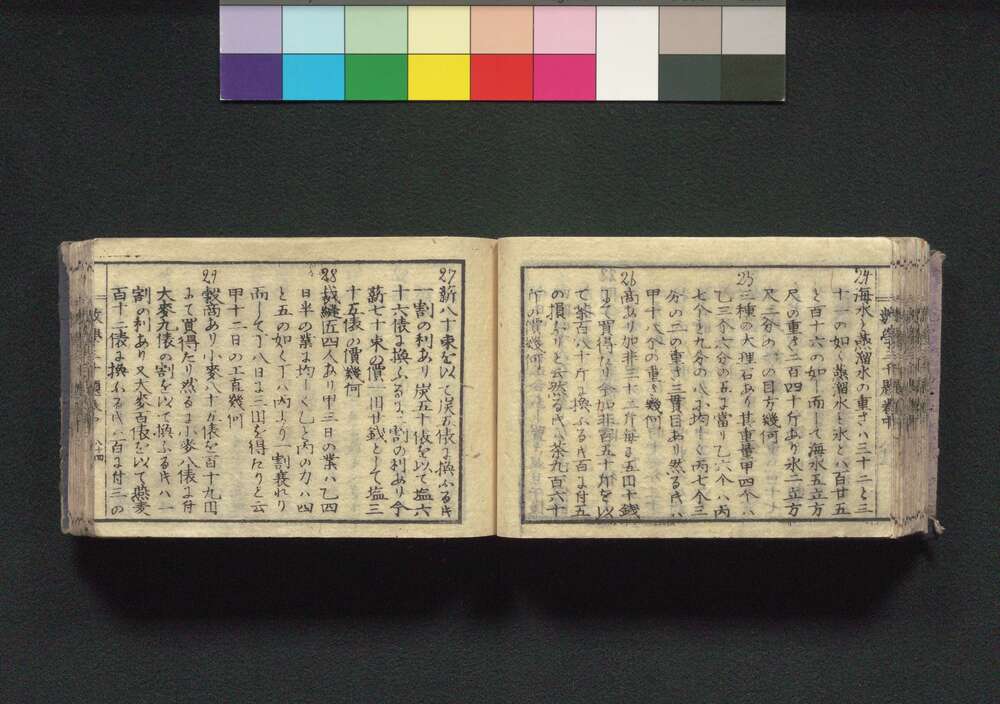 24 海水と蒸溜水の重さハ三十二と三
十一の如く蒸溜水と氷とハ百廿五
と百十六の如し而して海水五立方
尺の重さ二百四十斤あり氷二立方
尺三分の一の目方幾何
25 三種の大理石あり其重量甲四个ハ
乙三个六分の五に當り乙六个ハ丙
七个と九分の八に均しく丙七个三
分の二の重さ三貫目あり然る時ハ
甲十八个の重さ幾何
26 商あり加非三十二斤毎に五円十銭
にて買得たり今加非百五十斤を以
て茶百八十斤に換ふる時百に付五
の損ありと云然る時ハ茶九百六十
斤の價幾何
27 薪八十束を以て炭五俵に換ふる時
一割の利あり炭五十俵を以て塩六
十六俵に換ふるに、割の利あり今
薪七十束の價一円廿銭として塩三
十五俵の價幾何
28 裁縫匠四人あり甲三日の業ハ乙四
日半の業に均しく乙と丙の力ハ四
と五の如く丁ハ丙より一割義れり
而して丁八日に三円を得たりと云
甲十二日の工直幾何
29 穀商あり小麥八十五俵を百十九円
にて買得たり然るに小麥八俵に付
大麥九俵の割を以て換ふる時ハ一
割の利あり又大麥百俵を以て燕麥
百十二俵に換ふる時ハ百に付三の
數學三千題卷中
八十四